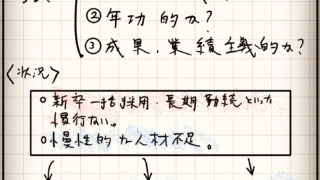 ②年功的か?
③成果,業績主義的か?
<状況>
○新卒一括採用・長期勤続といった
慣行ない。
○慢性的な人材不足。